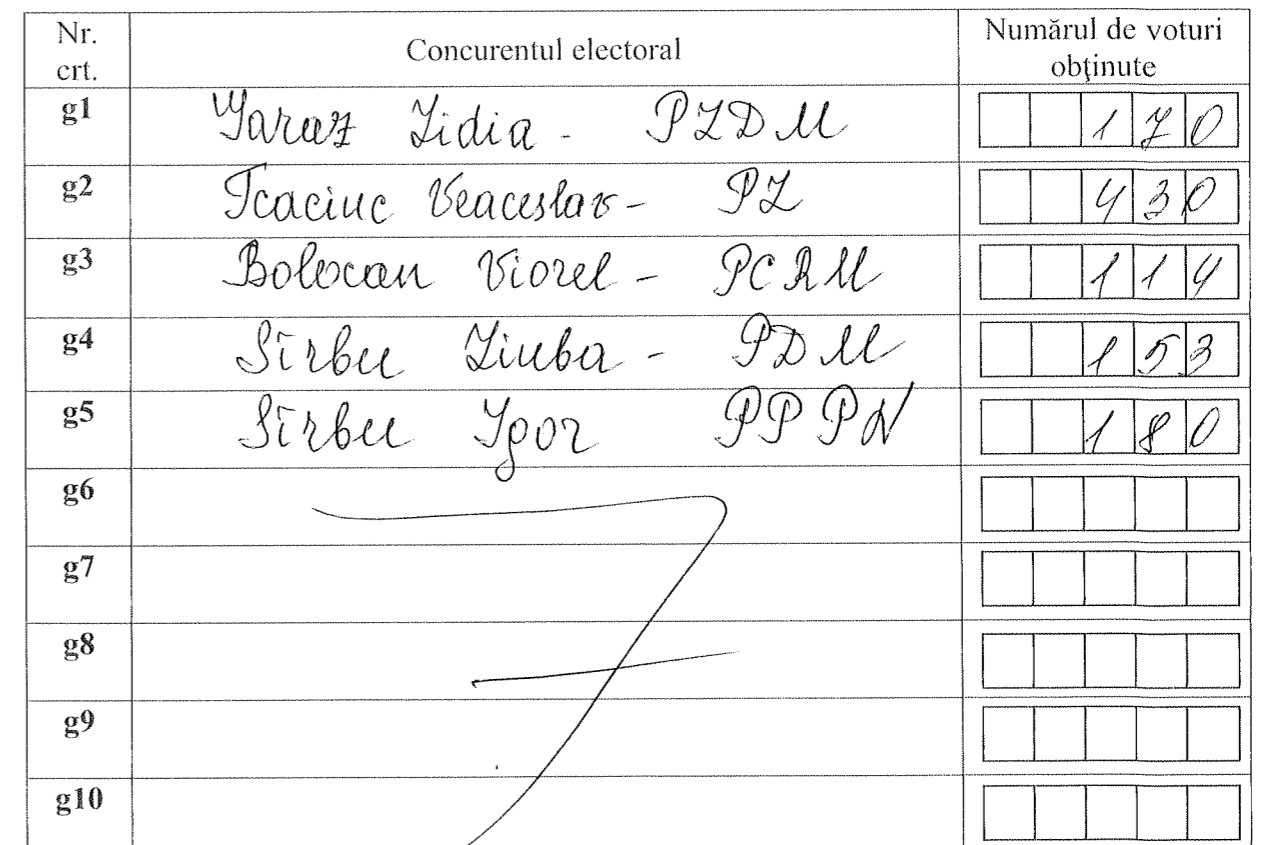 Nr. crt. Concurentul electoral Numărul de voturi obţinute
g1 Lidia - PLDM 170
g2 Tcaciuc Veaceslav - PL 430
g3 Bolocan Viorel - PCRM 114
g4 Sîrbu Liuba - PDM 153
g5 Sîrbu Igor PPPN 180
g6
g7
g8
g9
g10